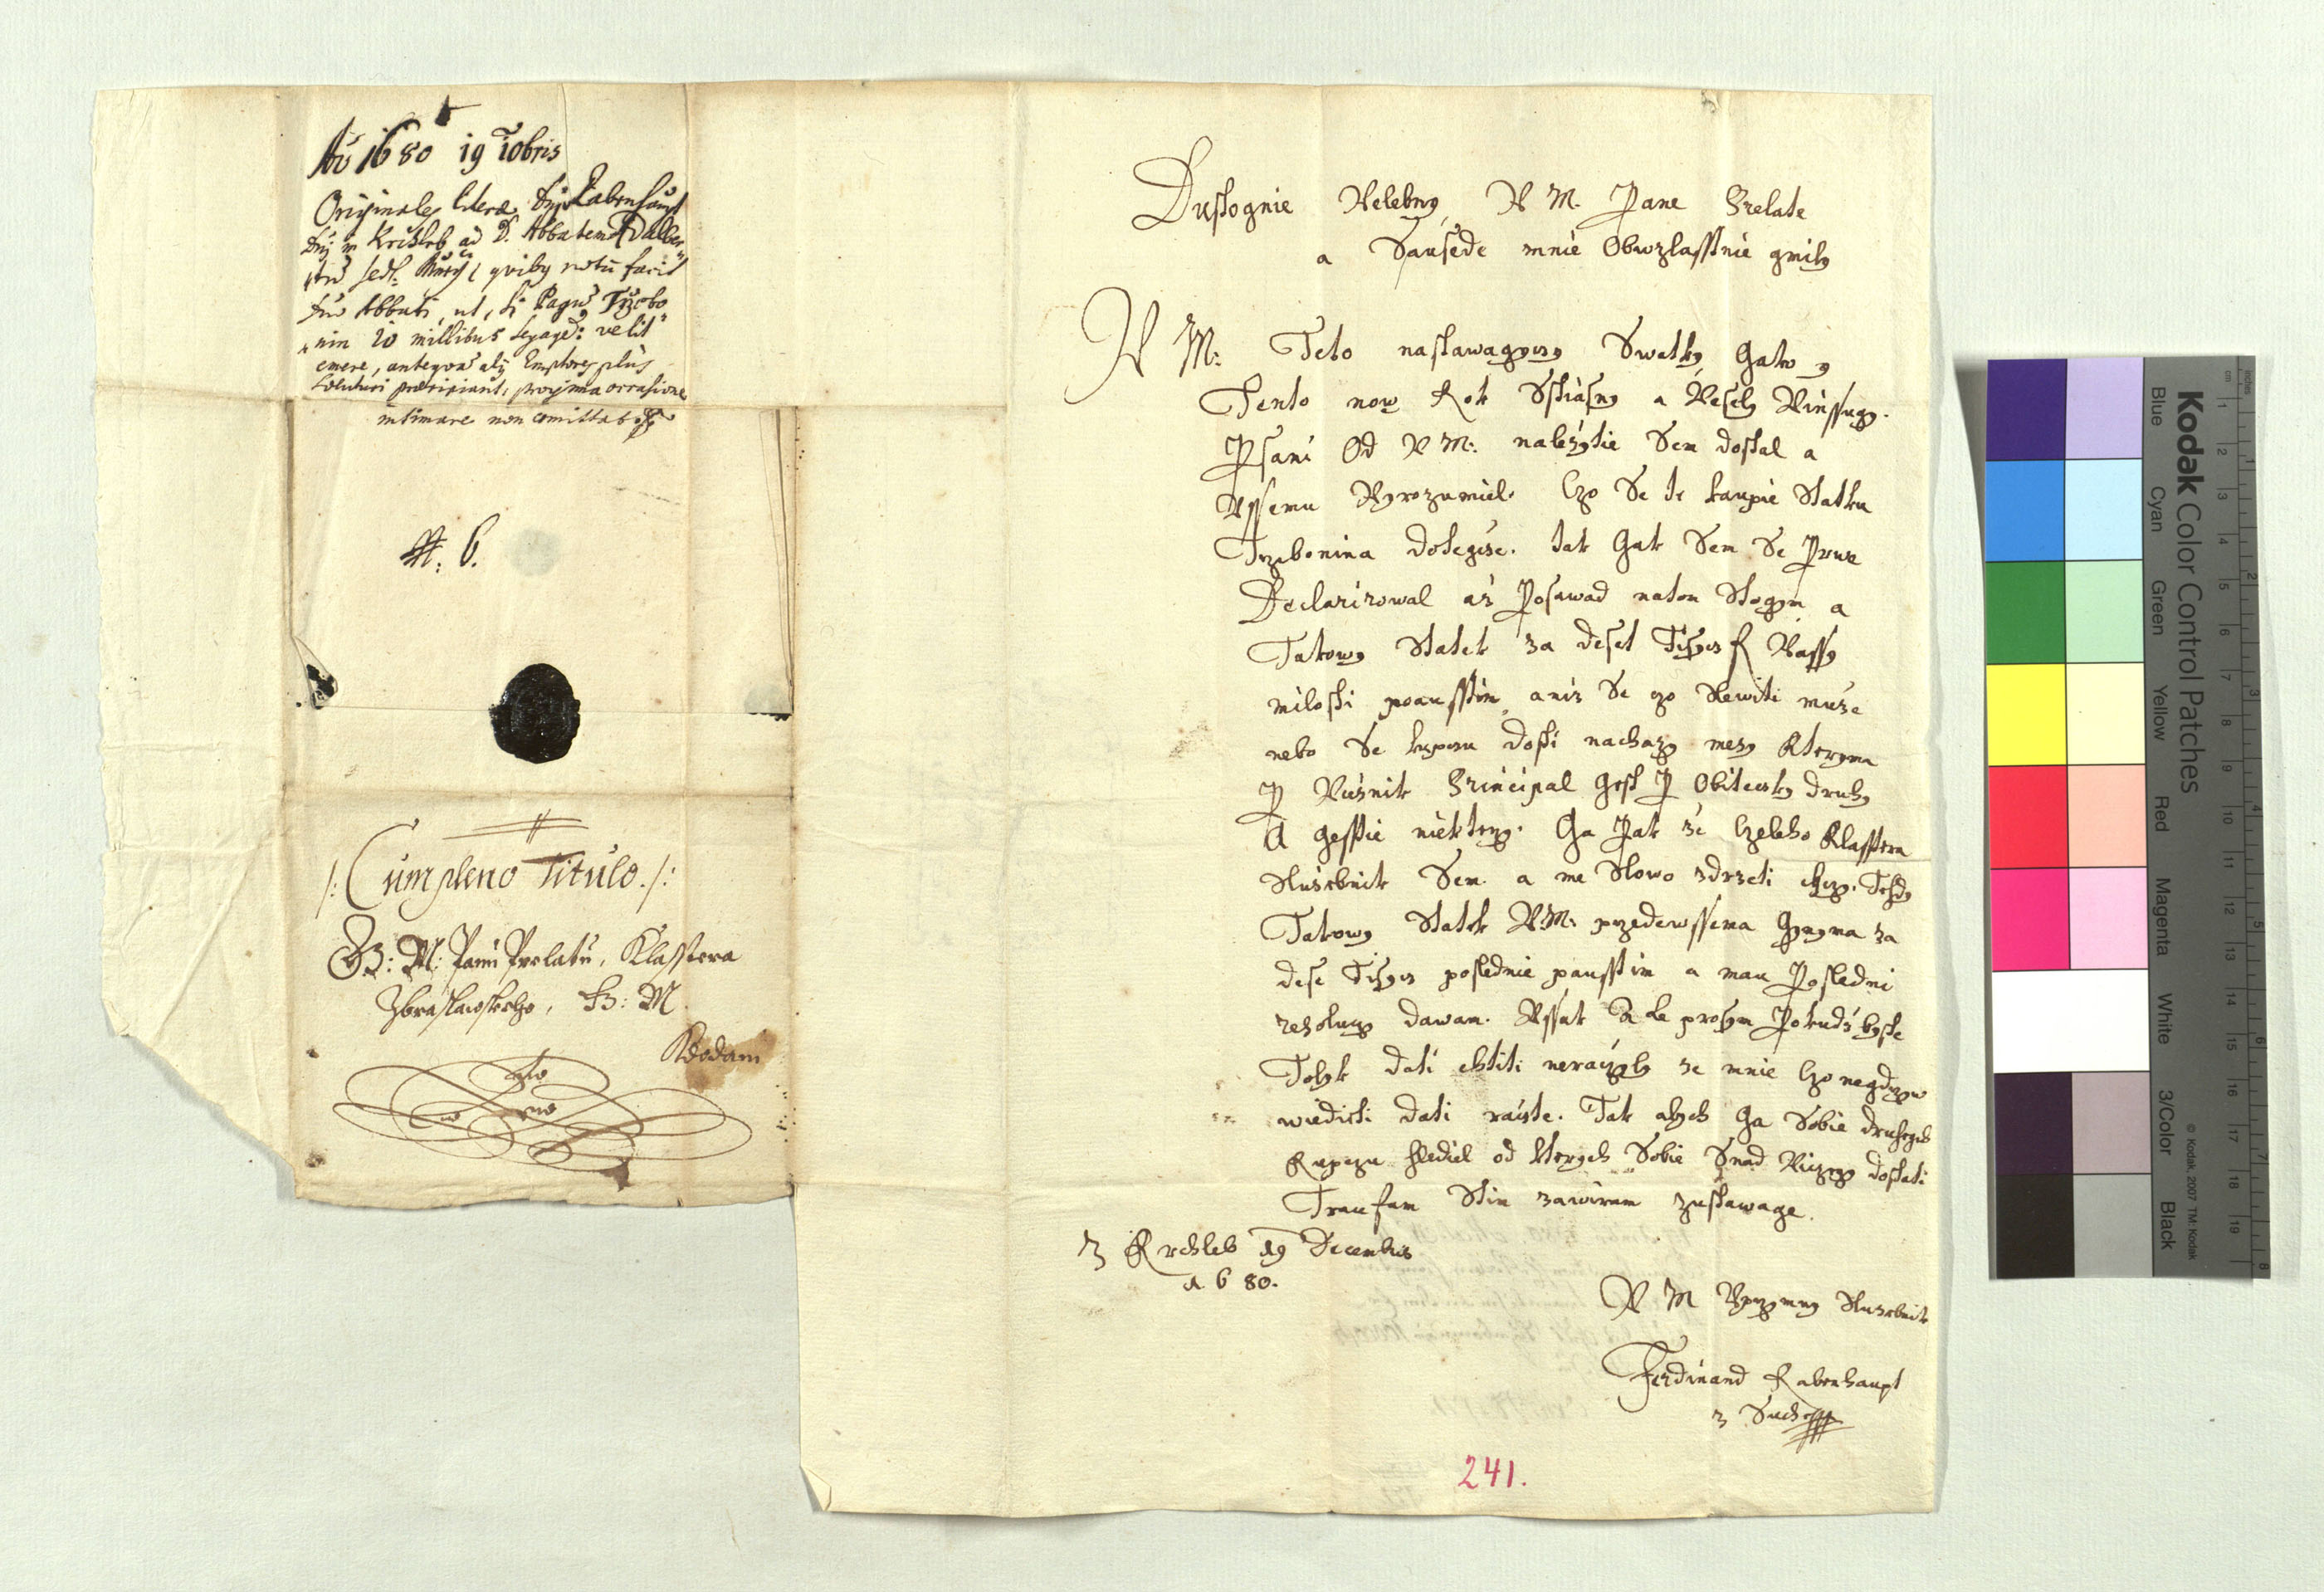 Aō 1680 19 Xbris
Originales literæ Dñi Rabenhaupt
Dñi in Krchleb ad D. Abbatem Adalber
quibq notū facit
Dno Abbati, ut, si Pagū Trzebo
nin 10 millibus velit
emere, anteqvā alij Emptores plùs
proxima occasione
intimare non comittat
N: 6.
/: Cum pleno Titulo. /:
W: M: Panu Prelatu, Klasstera
Zbraslawskeho,
Kdodani
Dustognie Welebny W M. Pane Prelate
a Sausede mnie Obwzlasstnie gmily
W M: Teto nastawagyczy Swatky gako y
Tento nowy Rok Sstiasny a Wesely Winssugy.
Psani Od W M: nalezytie Sem dostal a
Wssemu Wyrozumiel. Czo Se te kaupie Statku
Trzebonina dotegcze. tak gak Sem Se Prwe
Declarirowal az Posawad naton Stogym a
Takowy Statek za deset Tisycz R Wassy
milosti poausstim, aniz Se czo Slewiti muze
nebo Se kupczu dosti nachazy mezy kteryma
P Principal gest P druhy
A gesstie niektery. Ga Pak ze Czeleho Klasstera
Sluzebnik Sem a me Slowo zdrzeti chczy. Tehdy
Takowy Statek W M: przedewssema gynyma za
dese Tisycz poslednie pausstim a mau Posledni
resoluczy dawam. Wssak Za le prosym Pokudz byste
Tolyk dati chtiti neraczyly ze mnie Czo negdrzyw
wiedieti dati raczte. Tak abych Ga Sobie druhych
Kupczu hlediel od kterych Sobie Snad Wiczegy dostati
Traufam Stim zawiram zustawage.
Z Krchleb 19 Decembris
1680.
W M Uprzymny Sluzebnik
Ferdinand Rabenhaupt
z Suche
241.
Kodak Color Control Patches
© Kodak, 2007 TM: Kodak
Blue Cyan Green Yellow Red Magenta White 3/Color Black
inches 1 2 3 4 5 6 7 8
cm 1 2 3 4 5 6 7 8 9 10 11 12 13 14 15 16 17 18 19